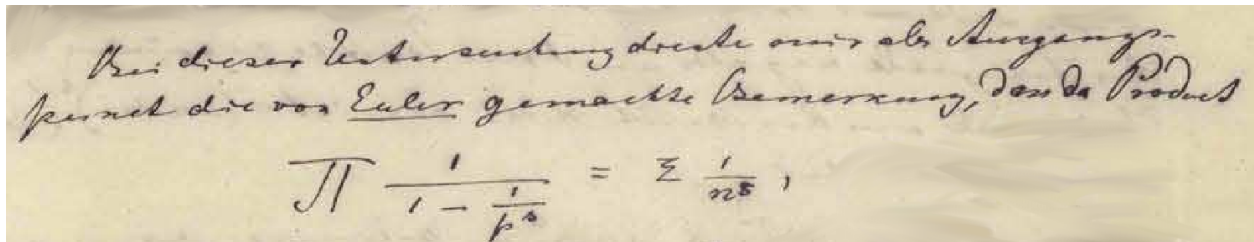 Bei dieser Untersuchung diente mir als Ausgangs-
punkt die von Euler gemachte Bemerkung, dass das Product
∏ 1/(1 − 1/p^s) = Σ 1/n^s,